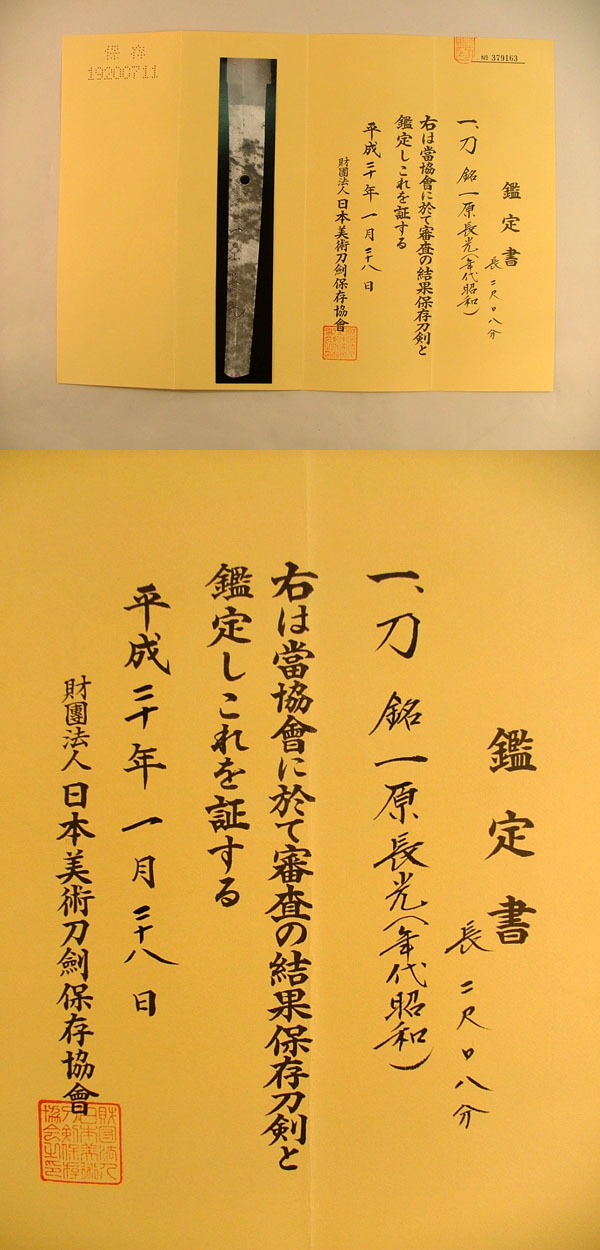 保存
19200711
№ 379163
鑑定書
一、刀 銘 一原長光(年代昭和)
長 二尺〇八分
右は當協會に於て審査の結果保存刀剣と
鑑定しこれを証する
平成二十年一月二十八日
財團法人日本美術刀劍保存協會
鑑定書
一、刀 銘 一原長光(年代昭和)
長 二尺〇八分
右は當協會に於て審査の結果保存刀剣と
鑑定しこれを証する
平成二十年一月二十八日
財團法人日本美術刀劍保存協會